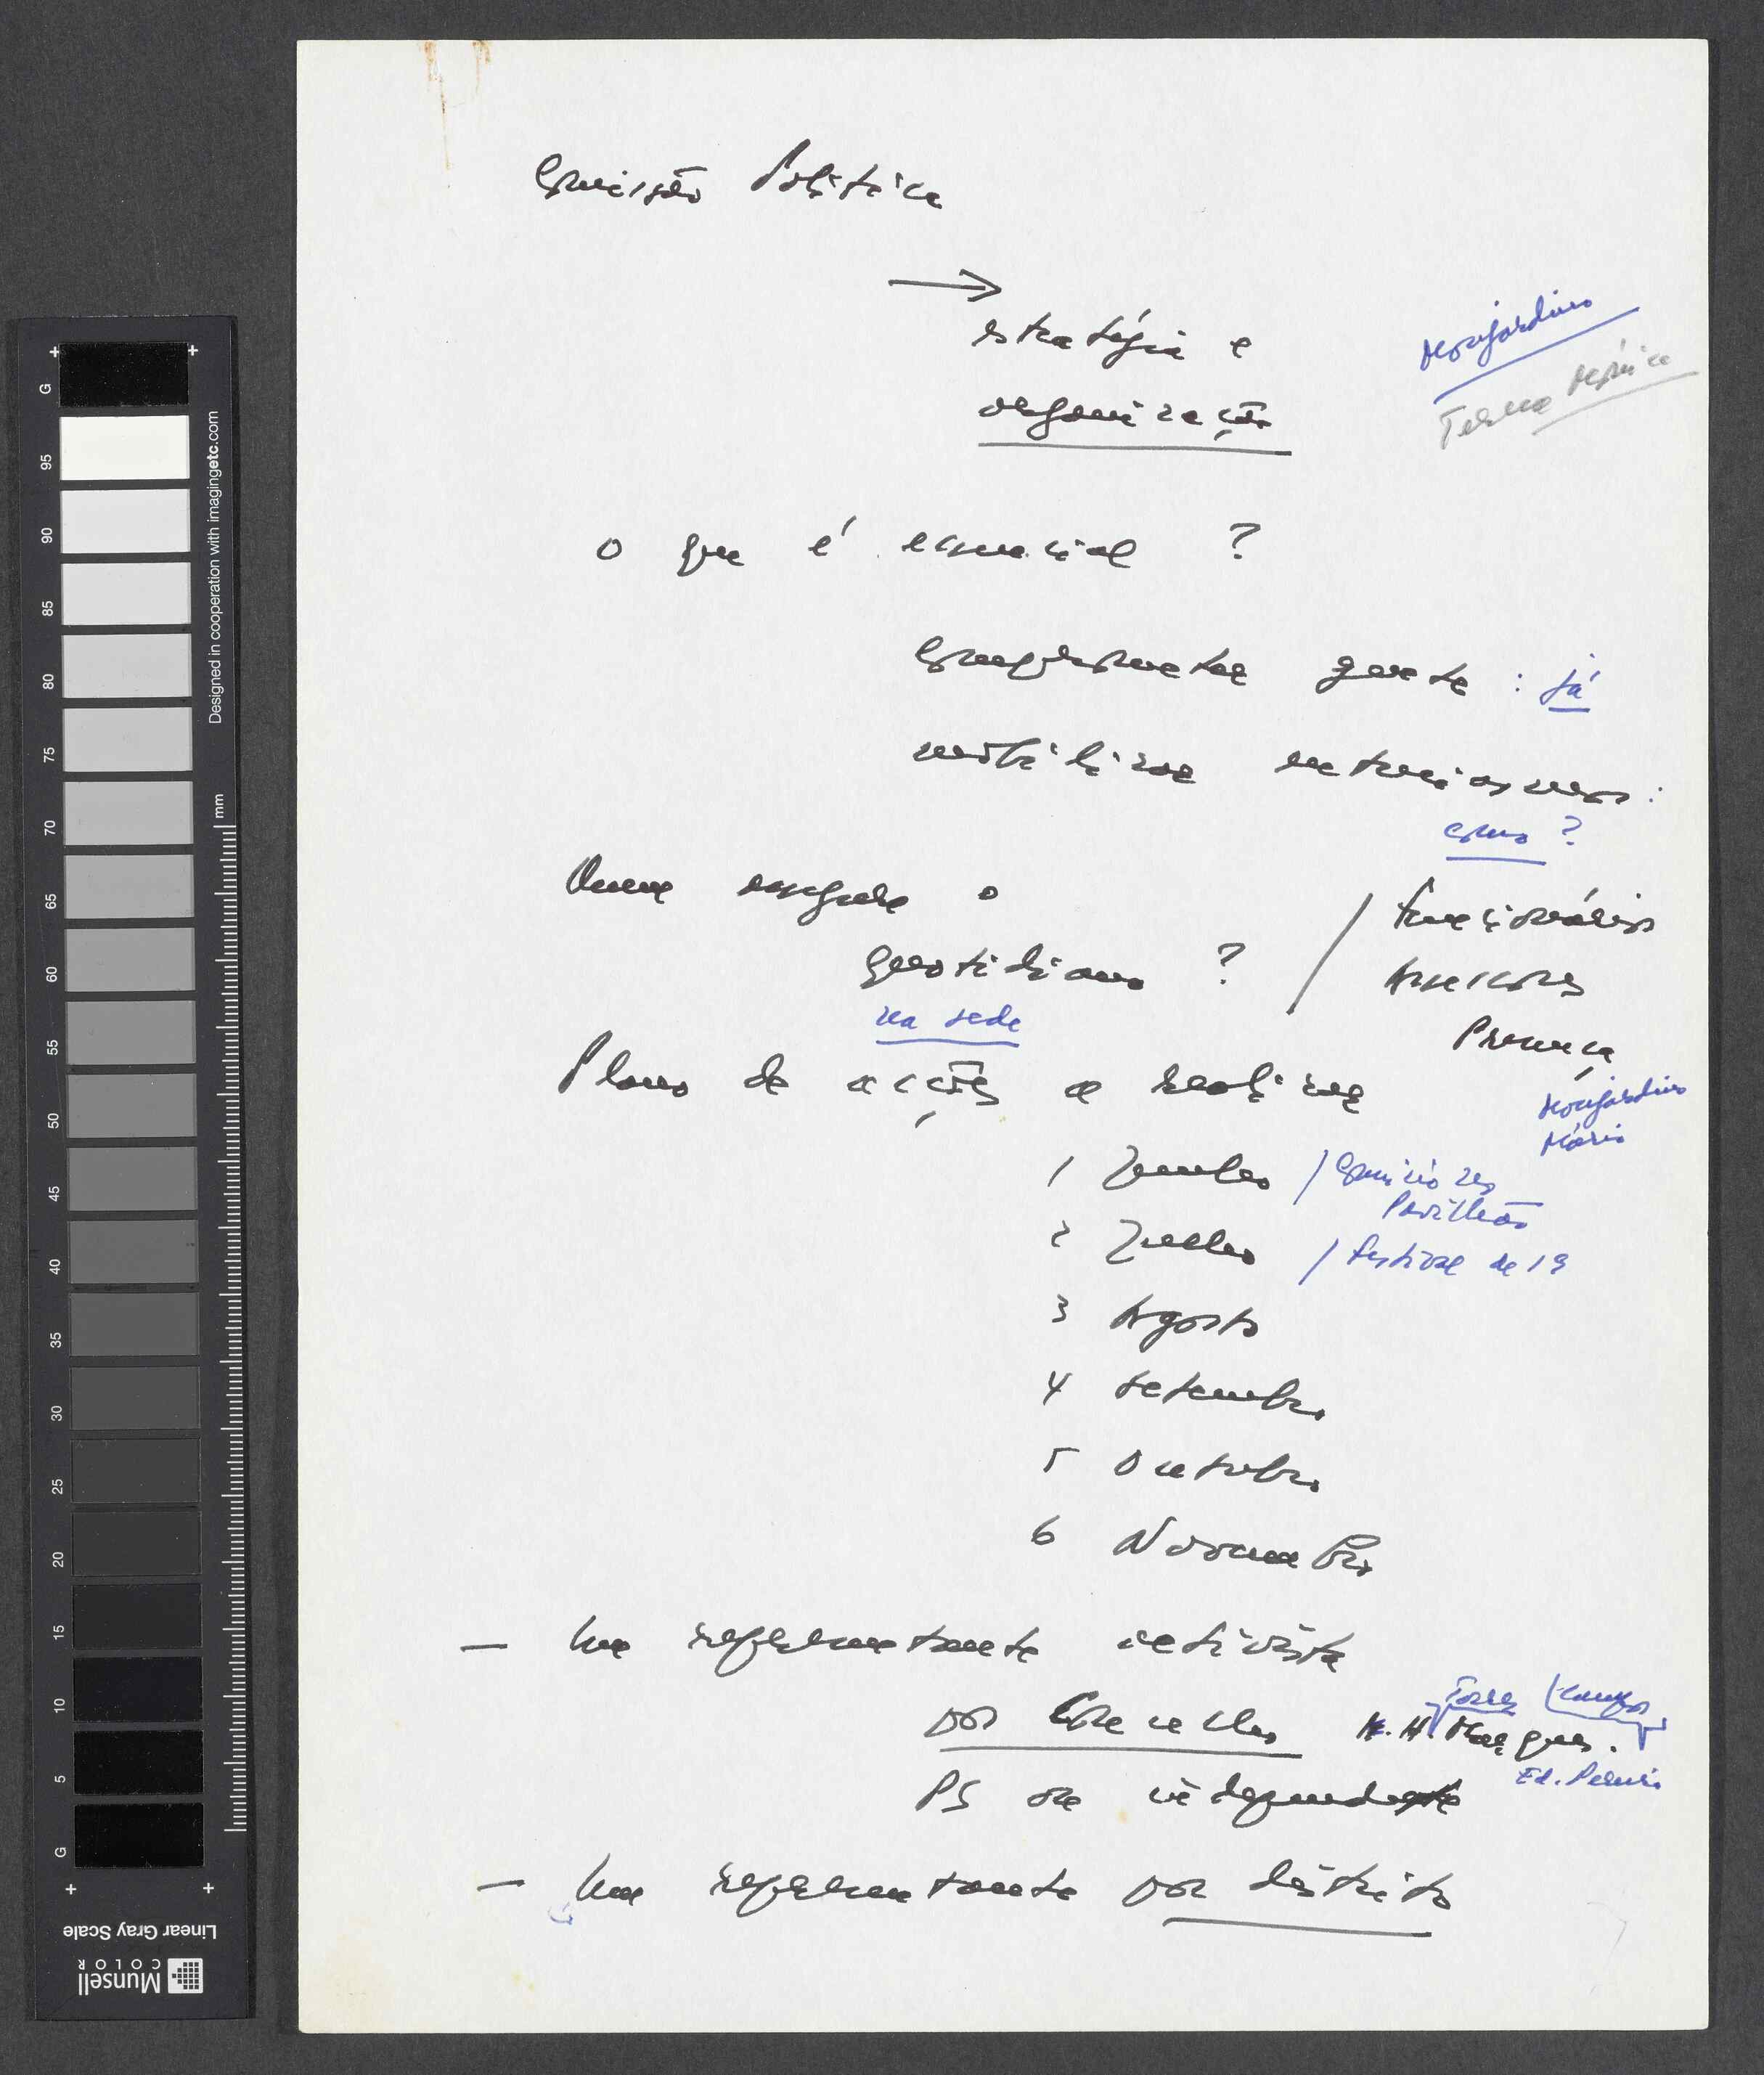 Comissão Política
→
estratégia e
organização
Monjardino
Teresa Mónica
o que é essencial ?
comprometer gente : já
mobilizar entusiasmos :
como ?
Quem assegura o
quotidiano ?
na sede
/ funcionários
Assessores
Presença
Monjardino
Mário
Plano de acções a realizar
1 Junho / Comício no
Pavilhão
2 Julho / festival de 19
3 Agosto
4 Setembro
5 Outubro
6 Novembro
— Um representante activista
por concelho
Torres
A. H. Marques.
Ed. Pereira
PS ou independente
— Um representante por distrito
G
95
90
85
80
75
70
65
60
55
50
45
40
35
30
25
20
15
10
5
G
mm
Designed in cooperation with imagingetc.com
Linear Gray Scale
Munsell
COLOR